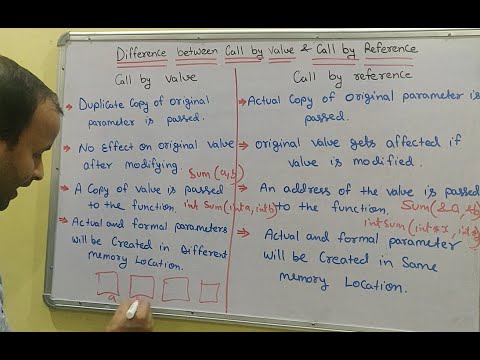 Difference between Call by value & Call by Reference
Call by value
→ Duplicate Copy of original
parameter is passed.
→ No Effect on original value
after modifying. Sum(a,b)
→ A Copy of value is passed
to the function. int Sum(int a, int b)
→ Actual and formal parameters
will be Created in Different
memory Location.
a
Call by reference
→ Actual Copy of original parameter is
passed.
→ original value gets affected if
value is modified.
→ An address of the value is passed
to the function. Sum(&a, &b)
int Sum(int *x, int
→ Actual and formal parameter
will be Created in Same
memory Location.